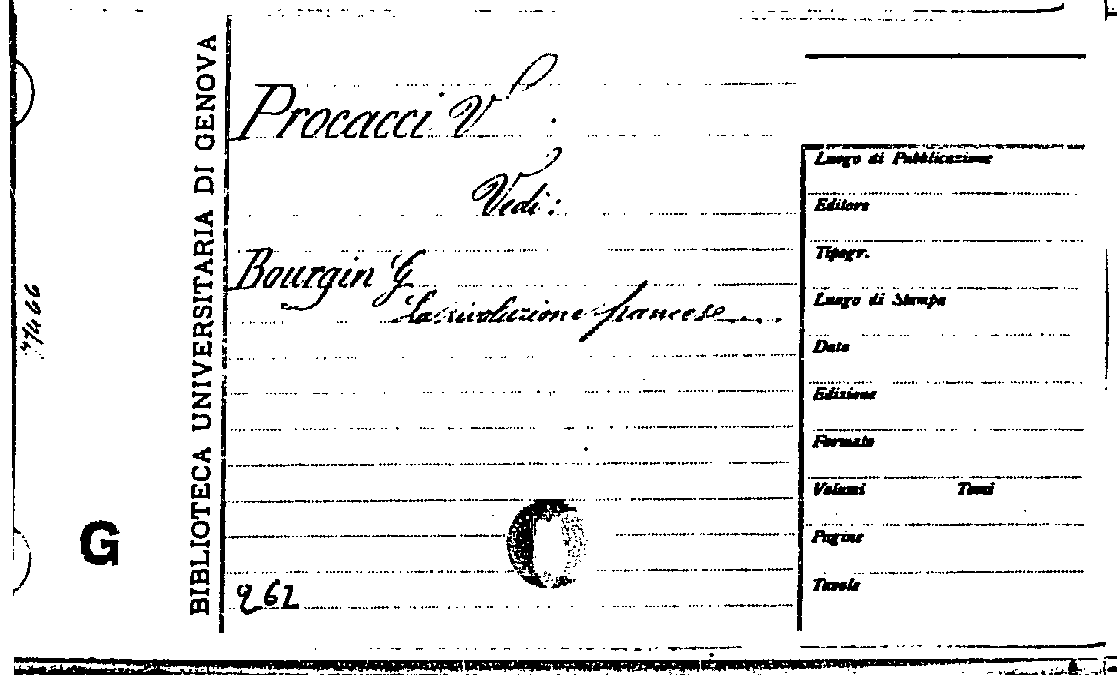 BIBLIOTECA UNIVERSITARIA DI GENOVA
G
Procacci V.
Vedi:
Bourgin G
La rivoluzione francese
Luogo di Pubblicazione
Editore
Tipogr.
Luogo di Stampa
Data
Edizione
Formato
Volumi Tomi
Pagine
Tavole